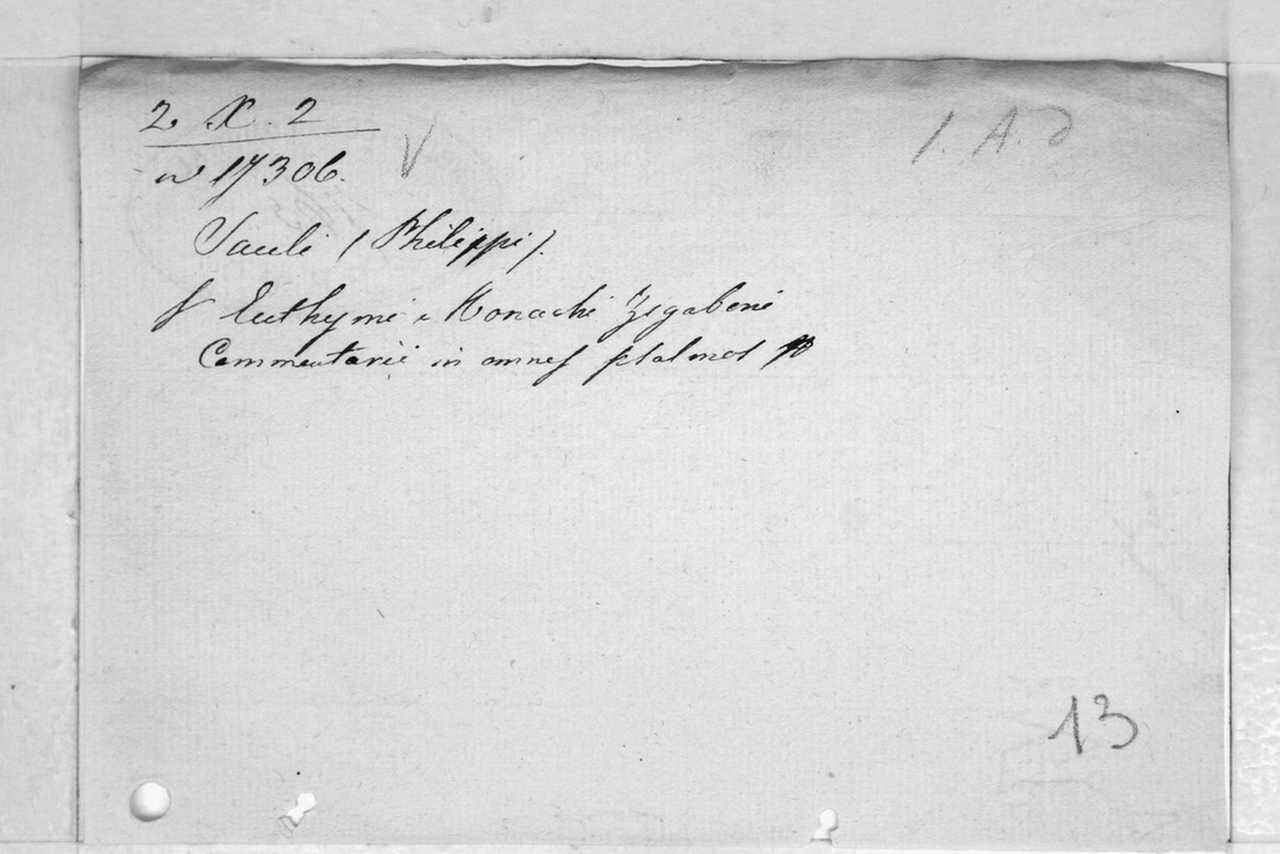 2 X. 2
1. A. d
n 17306.
Sauli (Philippi).
Euthymi Monachi Zygabeni
Commentarii in omnes psalmos
13